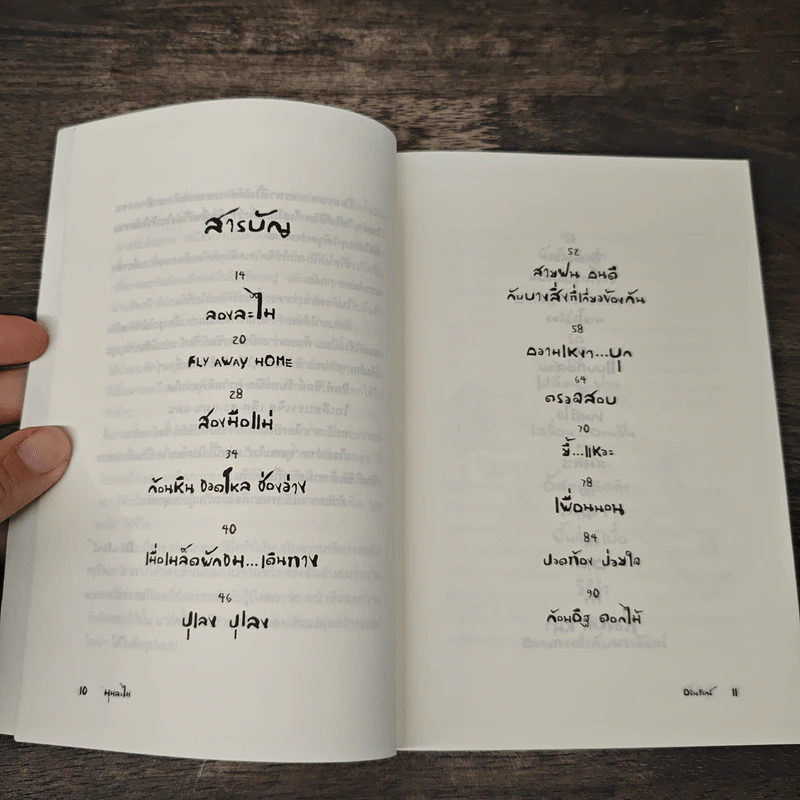 สารบัญ
14
ลองละไม
20
FLY AWAY HOME
28
สองมือแม่
34
ก้อนหิน ขวดโหล ช่องว่าง
40
เมื่อเมล็ดผักชม...เดินทาง
46
ปุเลง ปุเลง
10
52
สายฝน ดนตรี
กับบางสิ่งที่เกี่ยวข้องกัน
58
ความเหงา...บุก
64
ตรวจสอบ
70
ขี้...แหวะ
78
เพื่อนนอน
84
ปวดท้อง ป่วยใจ
90
ก้อนอิฐ ดอกไม้
11